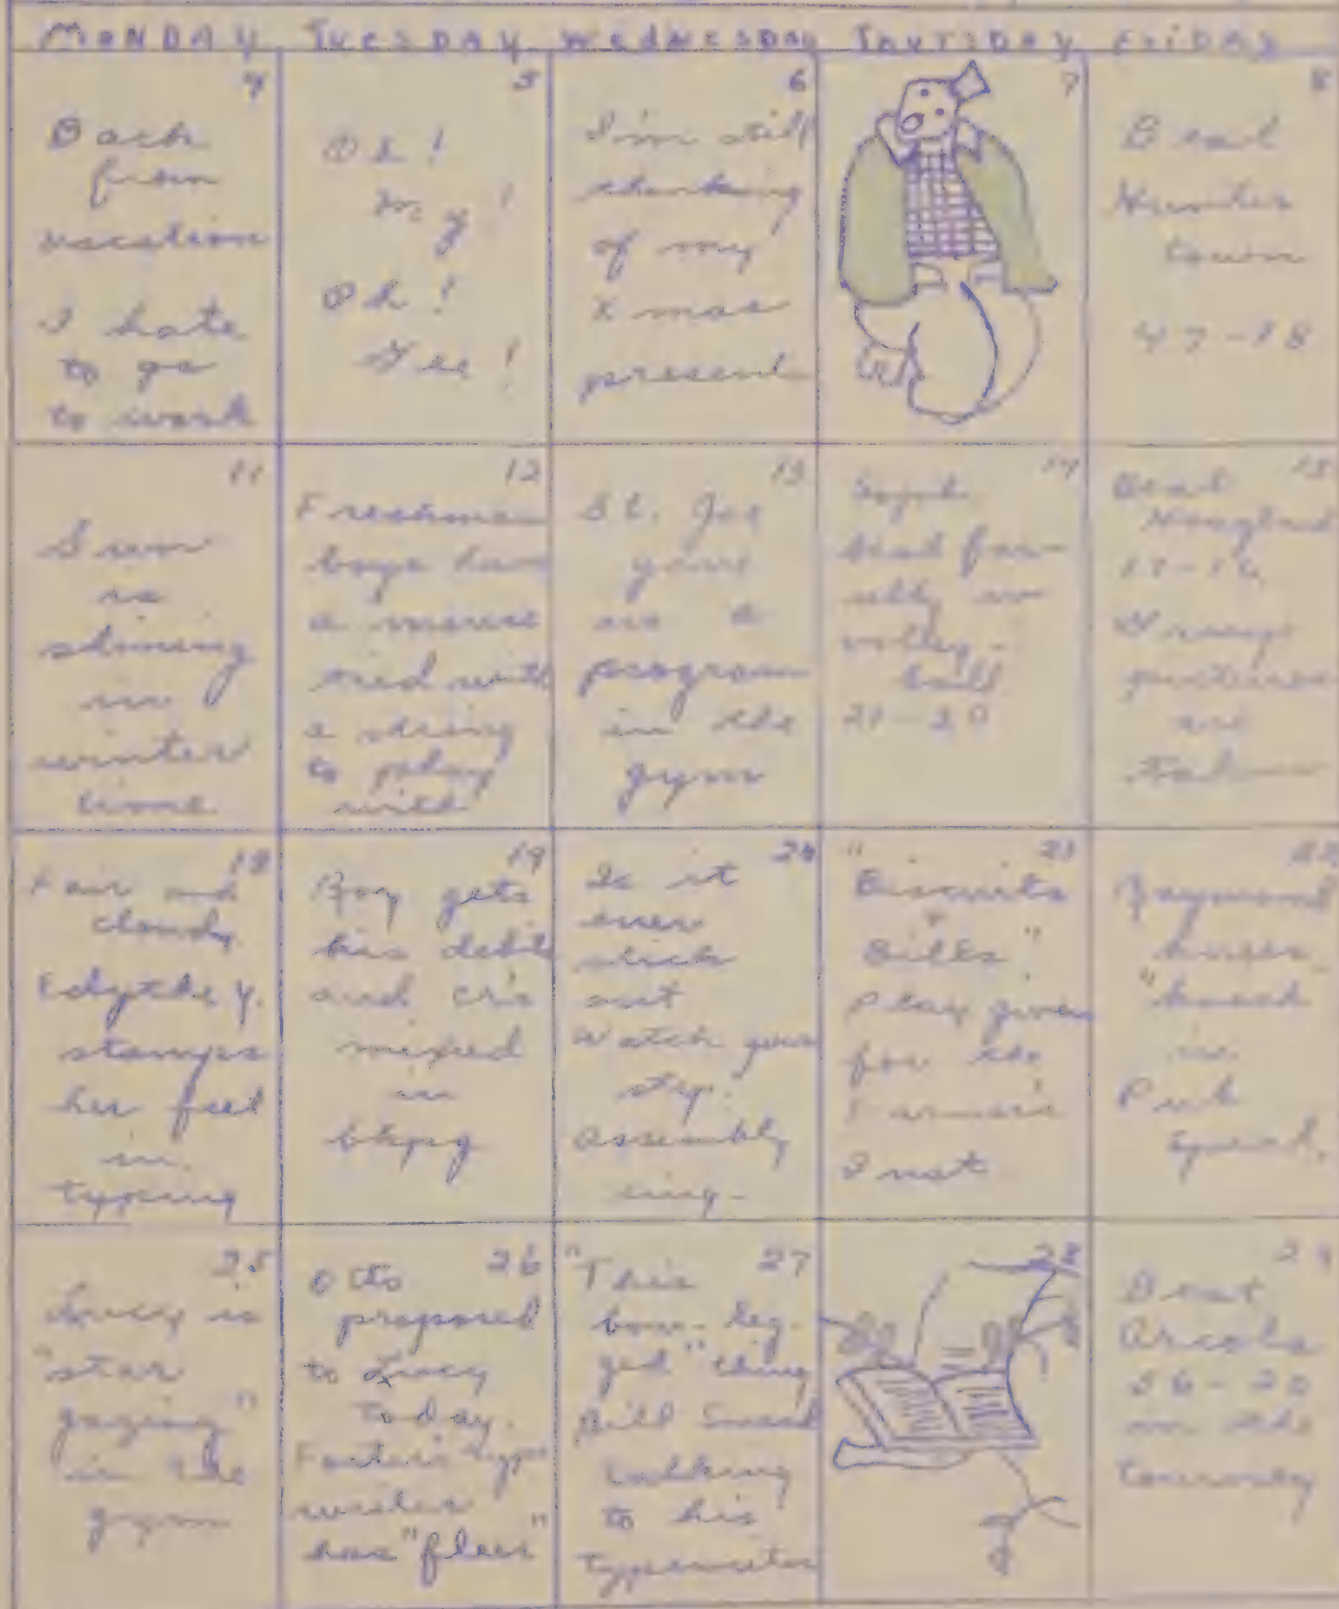 MONDAY TUESDAY WEDNESDAY THURSDAY FRIDAY
4
Back
from
vacation
I hate
to go
to work
5
Oh!
My!
Oh!
Gee!
6
I'm still
thinking
of my
Xmas
present
7
8
Beat
Hunter
town
47-18
11
Sun
is
shining
in
winter
time
12
Freshman
boys have
a mouse
tied with
a string
to play
with
13
St. Joe
gave
us a
program
in the
gym
14
Soph.
beat fac-
ulty in
volley-
ball
21-20
15
Beat
Hoagland
17-16
Group
pictures
are
taken
18
Fair and
cloudy
Edythe Y.
stamps
her feet
in
typing
19
Roy gets
his debits
and cr's
mixed
in
bkpg
20
Is it
ever
slick
out
Watch your
step.
Assembly
sing-
21
"Biscuits
+
Bills"
Play given
for the
Farmer's
Inst.
22
Raymond
knees
"knock"
in
Pub
Speak.
25
Lucy is
"star
gazing"
in the
gym
26
Otto
proposed
to Lucy
today.
Foster's type
writer
has "flees"
27
"This
bow-leg-
ged" thing
Bill Smead
talking
to his
typewriter
28
29
Beat
Arcola
56-20
in the
tourney